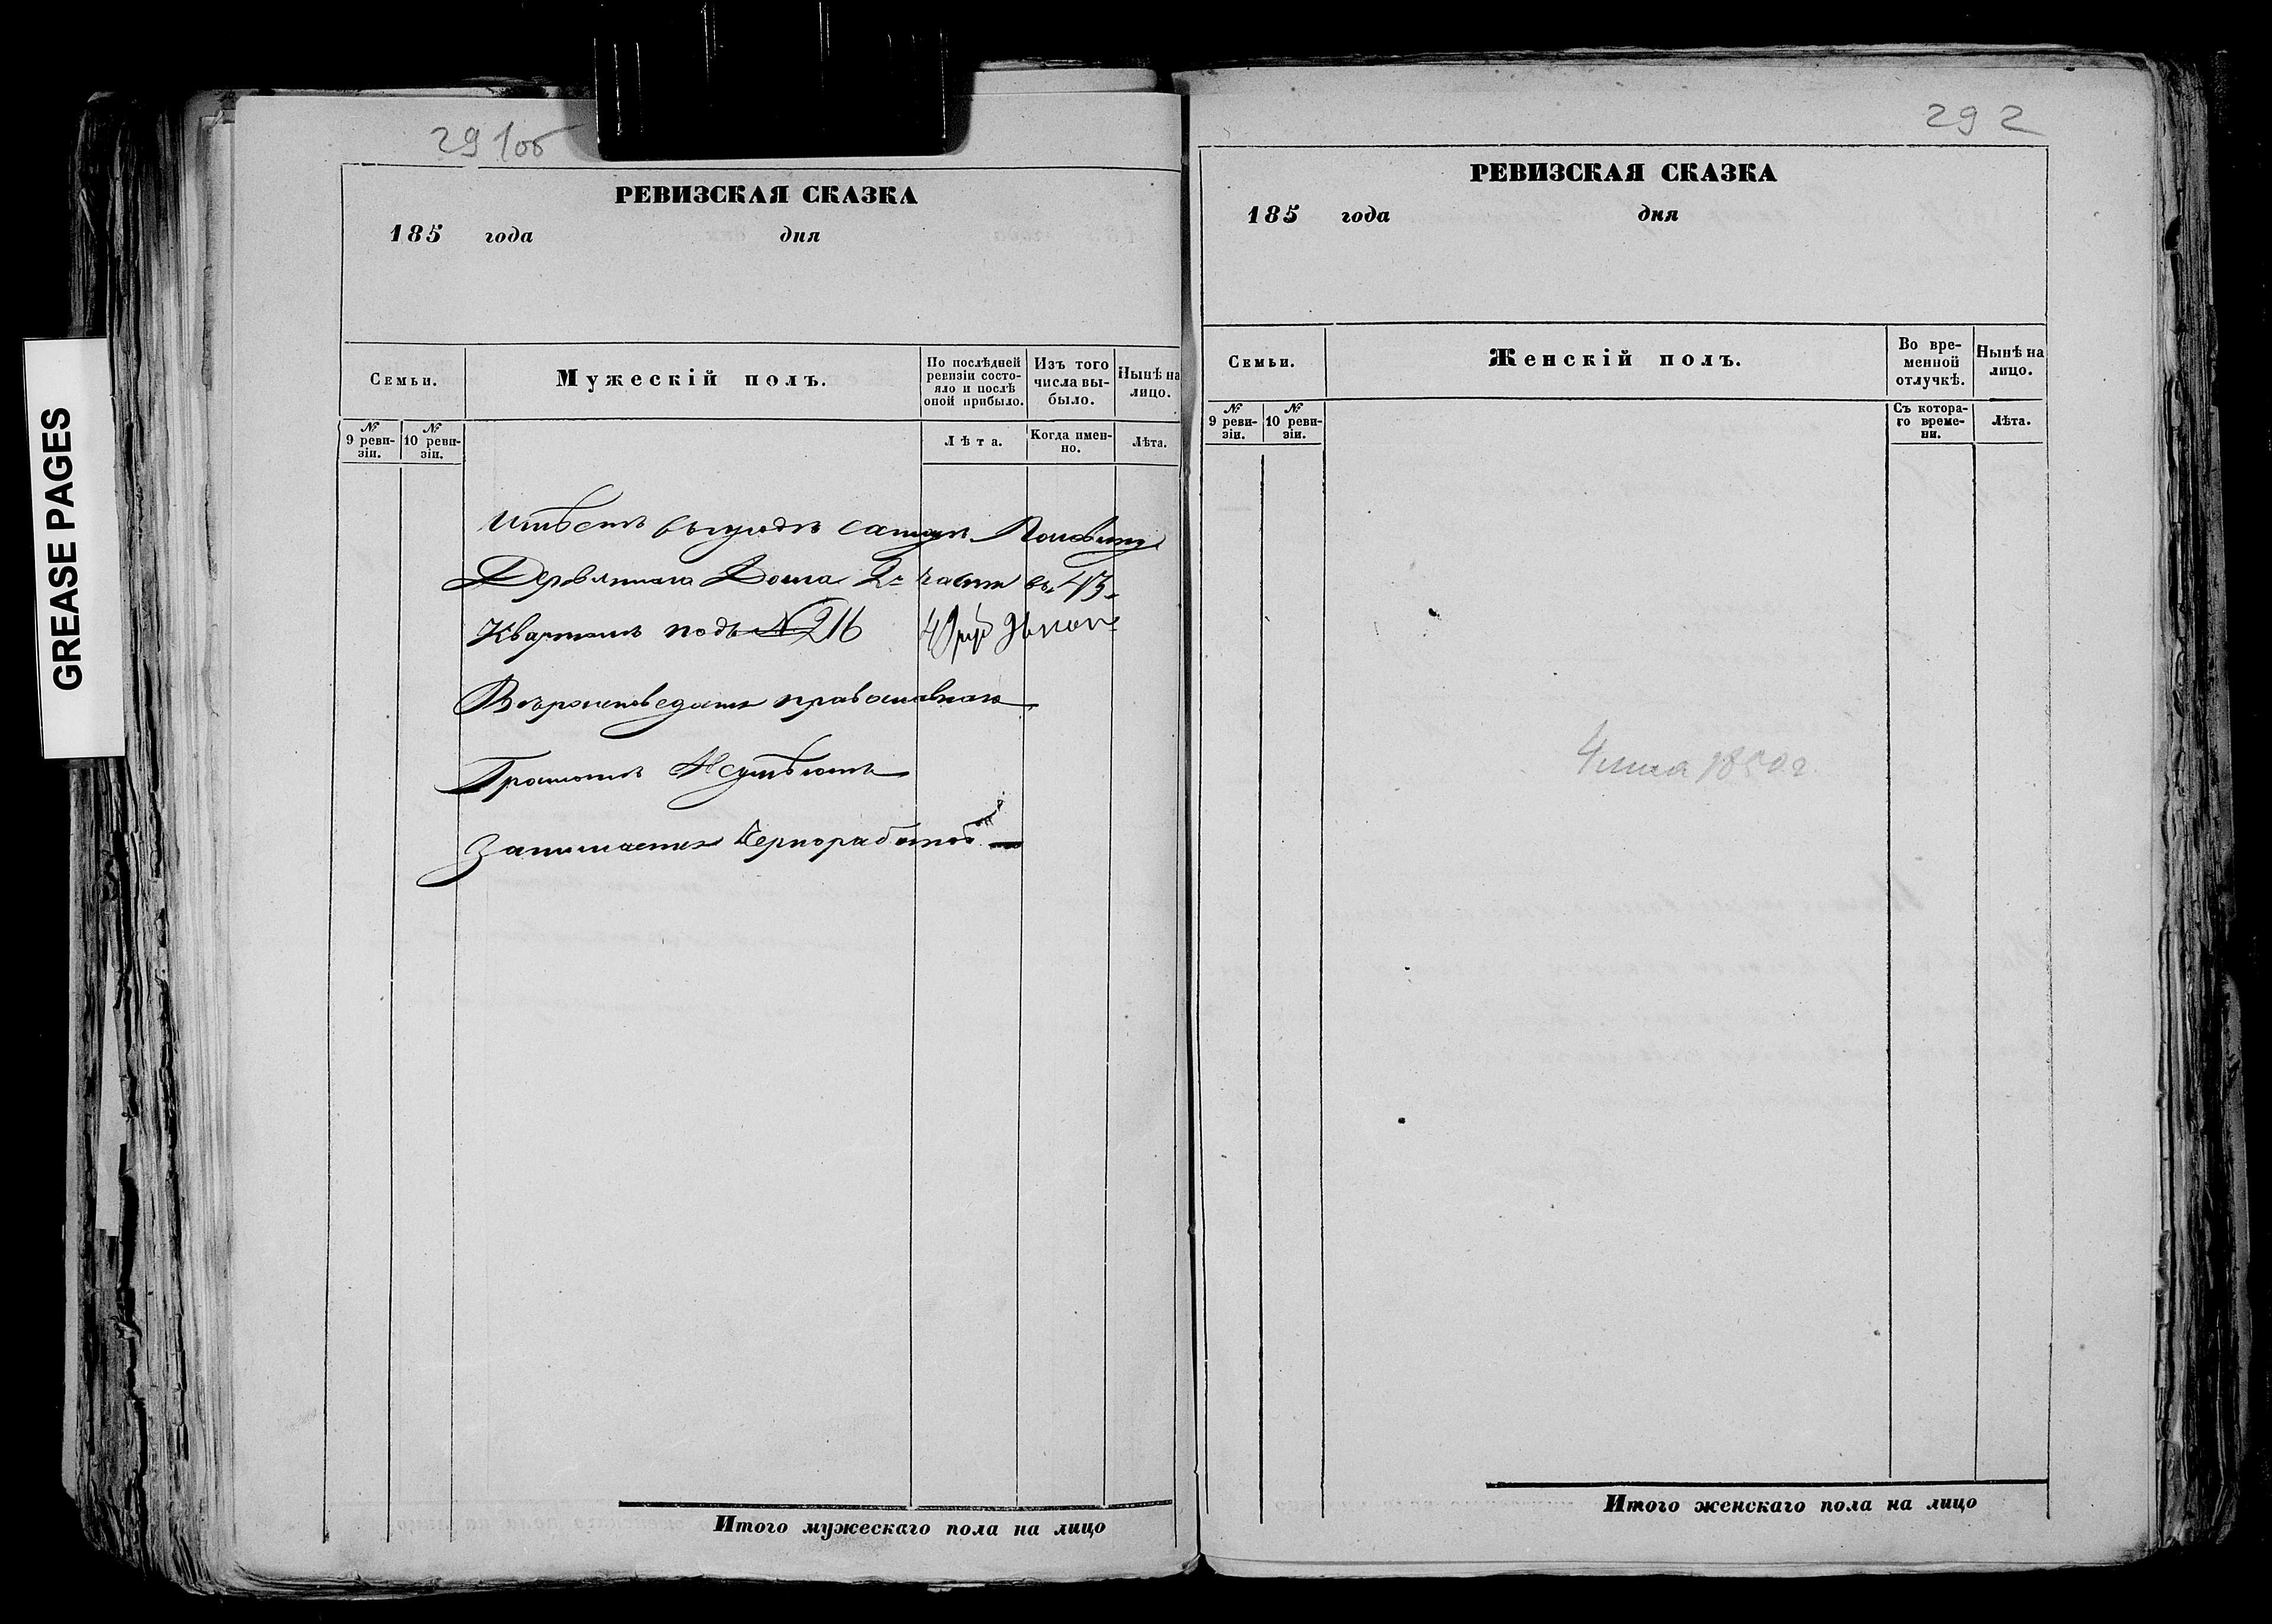 GREASE PAGES
291об
РЕВИЗСКАЯ СКАЗКА
185 года дня
Семьи.
Мужескій полъ.
По послѣдней ревизіи состояло и послѣ оной прибыло.
Изъ того числа выбыло.
Нынѣ на лицо.
№ 9 ревизіи.
№ 10 ревизіи.
Лѣта.
Когда именно.
Лѣта.
Имѣетъ въ городѣ Половину
Деревяннаго Дома 2й части въ 43м
Кварталѣ подъ № 216
Вѣроисповеданія православнаго
Грамотѣ Неумѣютъ
Занимается Чернорабочей
Итого мужескаго пола на лицо
292
РЕВИЗСКАЯ СКАЗКА
185 года дня
Семьи.
Женскій полъ.
Во временной отлучкѣ.
Нынѣ на лицо.
№ 9 ревизіи.
№ 10 ревизіи.
Съ котораго времени.
Лѣта.
1850 г.
Итого женскаго пола на лицо